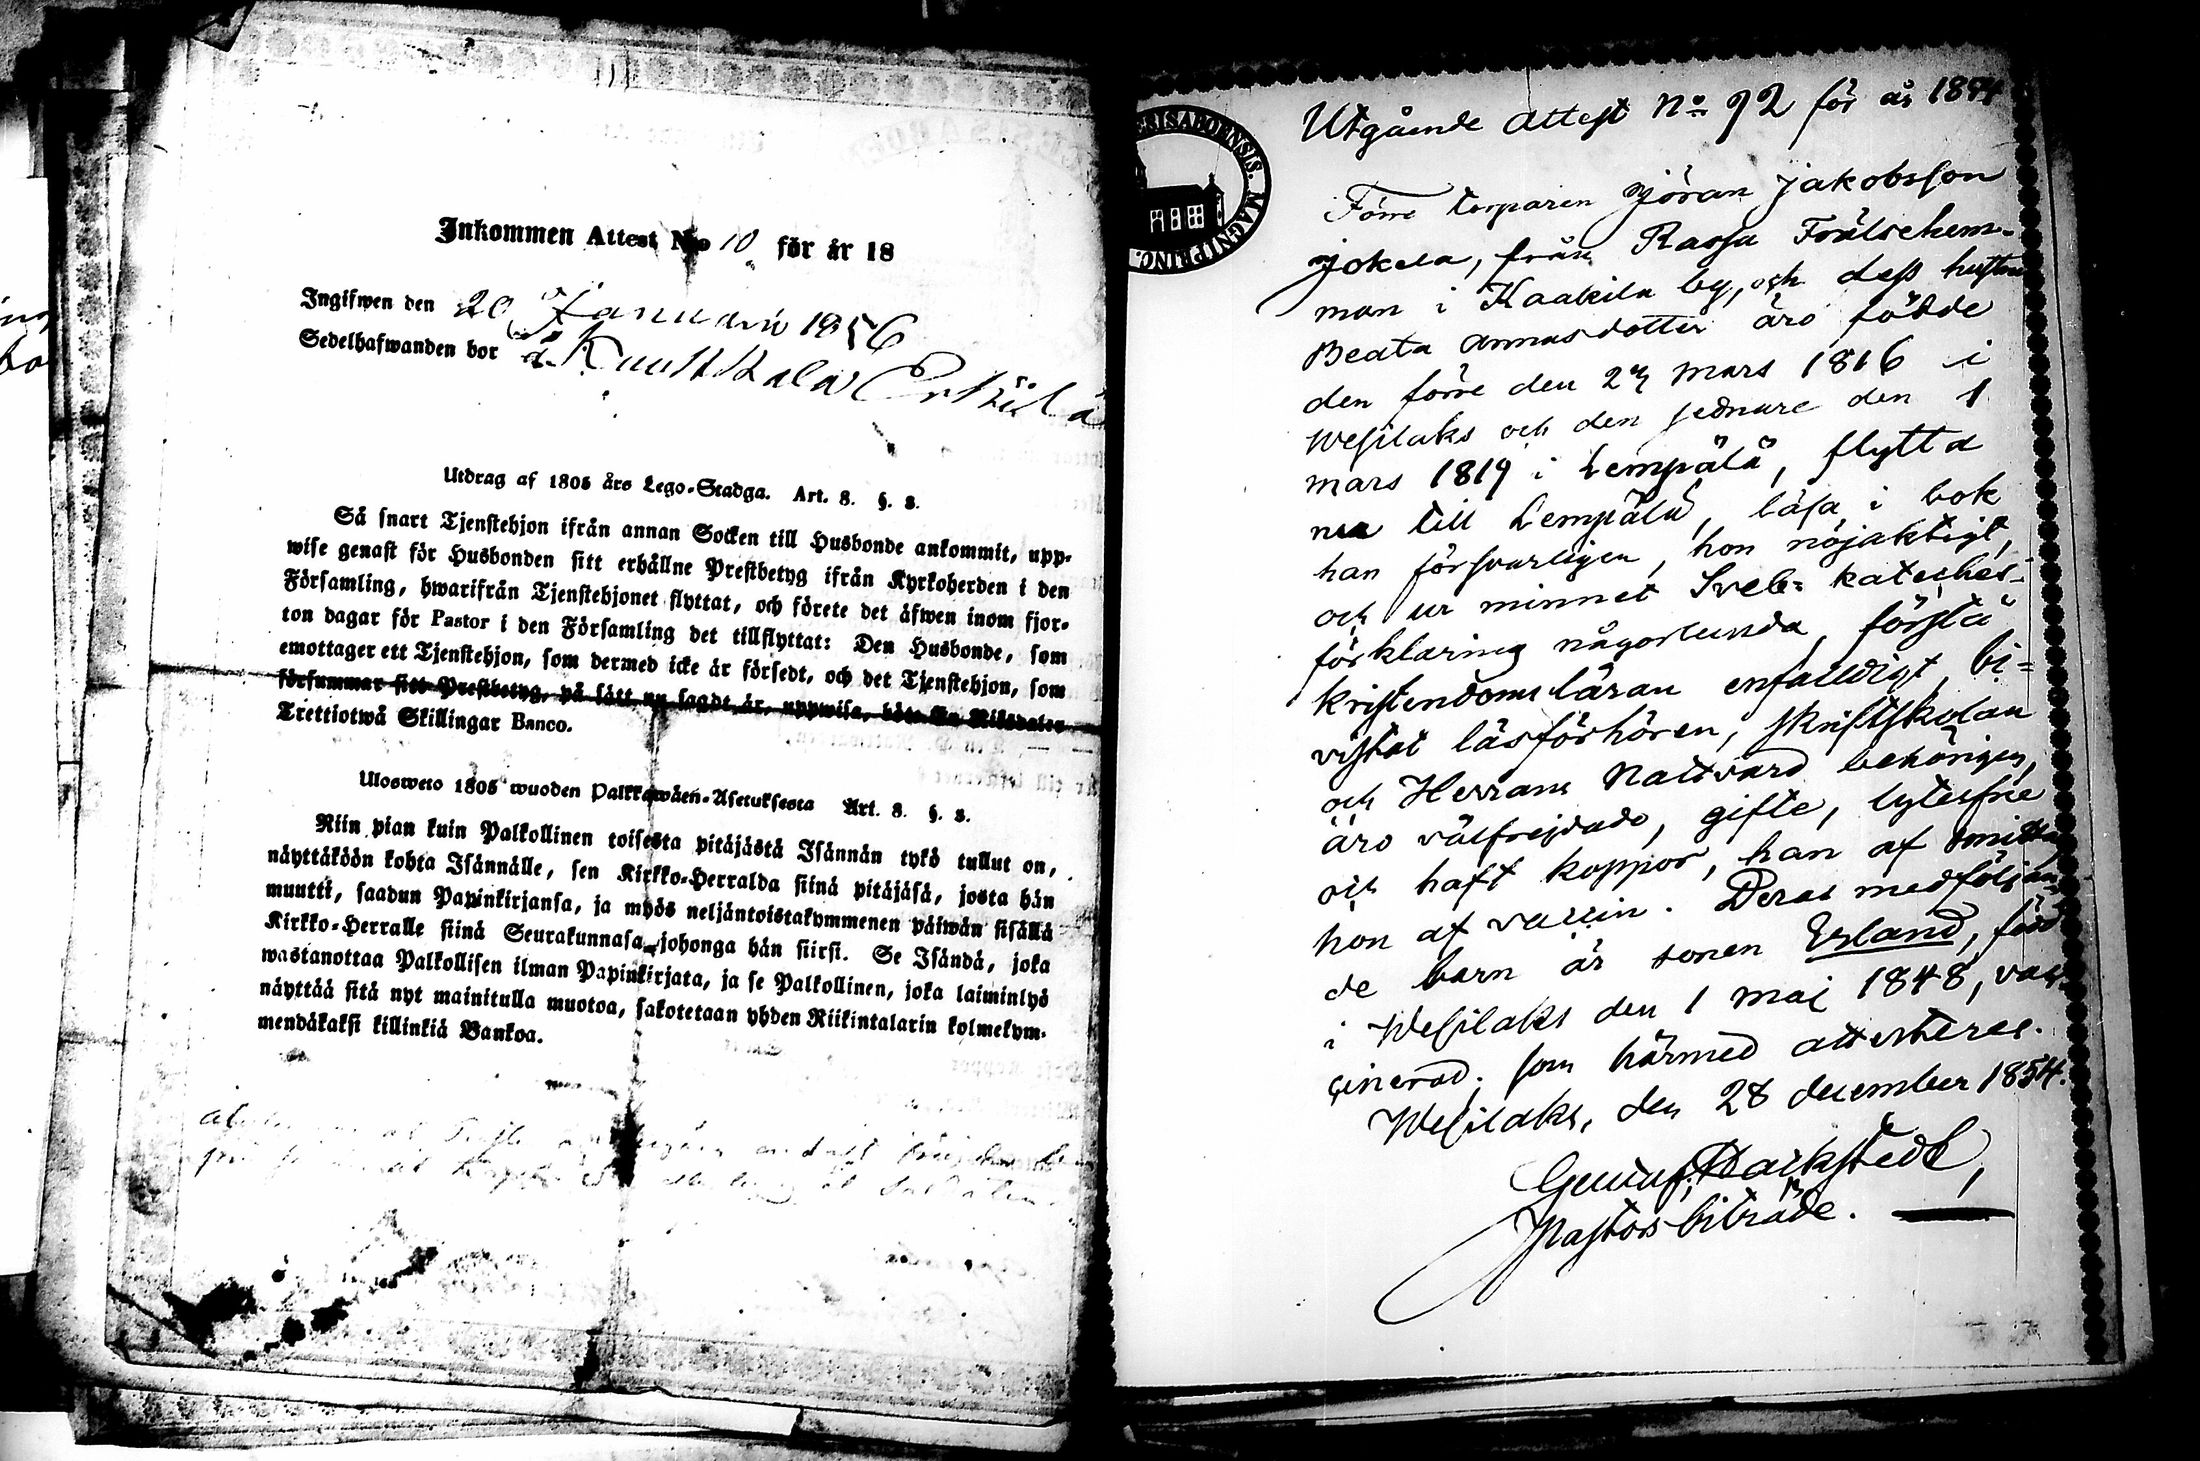 Inkommen Attest N:o 10 för år 18
Ingifwen den 20 Januari 1856
Sedelhafwanden bor
Utdrag af 1805 års Lego-Stadga. Art. 8. §. 8.
Så snart Tjenstehjon ifrån annan Socken till Husbonde ankommit, upp-
wise genast för Husbonden sitt erhållne Prestbetyg ifrån Kyrkoherden i den
Församling, hwarifrån Tjenstehjonet flyttat, och förete det äfwen inom fjor-
ton dagar för Pastor i den Församling det tillflyttat: Den Husbonde, som
emottager ett Tjenstehjon, som dermed icke är försedt, och det Tjenstehjon, som
försummar sitt Prestbetyg, på sätt nu sagdt är, uppwisa, böte En Riksdaler
Trettiotwå Skillingar Banco.
Ulosweto 1805 wuoden Palkkawäen-Asetuksesta Art. 8. §. 8.
Niin pian kuin Palkollinen toisesta pitäjästä Isännän tykö tullut on,
näyttäköön kohta Isännälle, sen Kirkko-Herralda siinä pitäjäsä, josta hän
muutti, saadun Papinkirjansa, ja myös neljäntoistakymmenen päiwän sisällä
Kirkko-Herralle siinä Seurakunnasa johonga hän siirsi. Se Isändä, joka
wastanottaa Palkollisen ilman Papinkirjata, ja se Palkollinen, joka laiminlyö
näyttää sitä nyt mainitulla muotoa, sakotetaan yhden Riikintalarin kolmekym-
mendäkaksi killinkiä Bankoa.
MAGNI PRINC.
Utgående attest No 92 för år 1854
Förre torparen Jöran Jakobsson
Jokela, från Rassa Frälsehem-
man i Kaakila by, och dess hustru
Beata Annasdotter äro födde
den förre den 27 mars 1816 i
Wesilaks och den sednare den 1
mars 1819 i Lempälä, flytta
nu till Lempälä, läsa i bok
han försvarligen, hon nöjaktigt,
och ur minnet Sveb: kateches-
förklaring någorlunda, första
kristendoms läran enfaldigt, bi=
vistat läsförhören, skriftskolan
och Herrans Nattvard behörigen,
äro välfrejdade, gifte, lytesfrie
och haft koppor, han af smitta,
hon af vaccin. Deras medföljan-
de barn är sonen Erland, född
i Wesilaks den 1 maj 1848, vac-
cinerad; som härmed attesteras.
Wesilaks, den 28 december 1854.
Packstedt,
Pastorsbiträde.